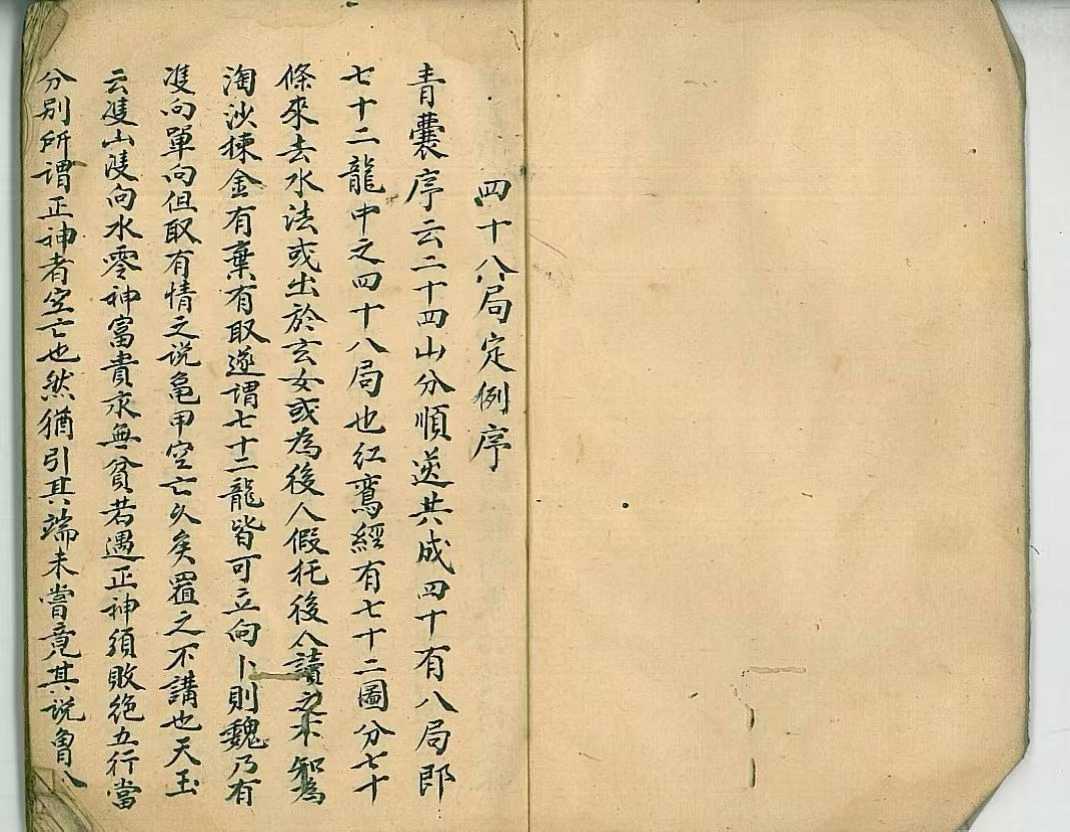 四十八局定例序
青囊序云二十四山分順逆共成四十有八局即
七十二龍中之四十八局也紅鸞經有七十二圖分七十
條來去水法或出於玄女或為後人假托後人讀之不知為
淘沙揀金有棄有取遂謂七十二龍皆可立向卜則魏乃有
㕠向單向但取有情之说龟甲空亡久矣置之不講也天玉
云㕠山㕠向水零神富貴永無貧若遇正神須敗絶五行當
分別所謂正神者空亡也然猶引其端未嘗竟其说魯八